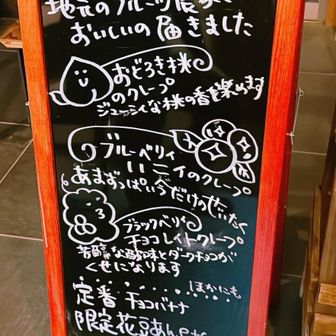 地元のフルーツ農家
おいしいの届きました
おどろき桃
のクレープ
ジューシィな桃の香を楽めます
ブルーベリィ
ハニィのクレープ
あまずっぱい今だけのぜいたく
ブラックベリィ
チョコレイトクレープ
芳醇な酸味とダークチョコが
くせになります
ほかにも
定番 チョコバナナ
限定花豆あん